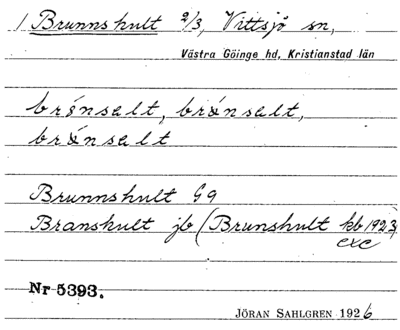 / Brunnshult 2/3, Vittsjö sn,
Västra Göinge hd, Kristianstad län
brǿnsalt, brǽnsalt,
brǽnsalt
Brunnshult G9
Branshult jb (Brunshult kb 1923)
exc
Nr 5393.
JÖRAN SAHLGREN 1926